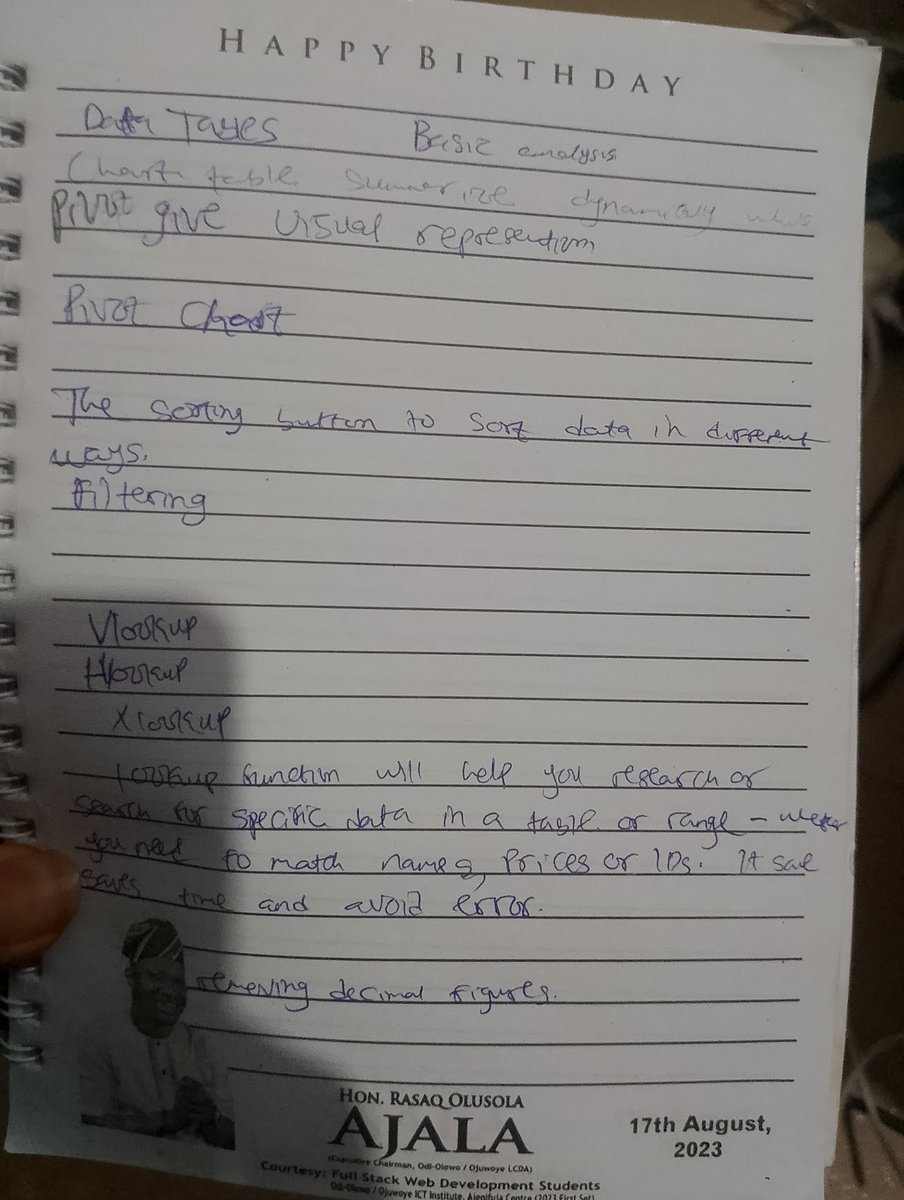 HAPPY BIRTHDAY
Data Tayes Basic analysis
Chart table summarize dynamically
Pivot give visual representim
Pivot Chart
The sorting button to sort data in different
ways.
Filtering
Vlookup
Hlookup
Xlookup
lookup function will help you research or
search for specific data in a table or range -
you need to match names, Prices or IDs. It save
saves time and avoid error.
removing decimal figures.
HON. RASAQ OLUSOLA
AJALA
(Executive Chairman, Odi-Olowo / Ojuwoye LCDA)
Courtesy: Full Stack Web Development Students
Odi-Olowo / Ojuwoye ICT Institute, Ajenifuja Centre (2023 First Set)
17th August,
2023